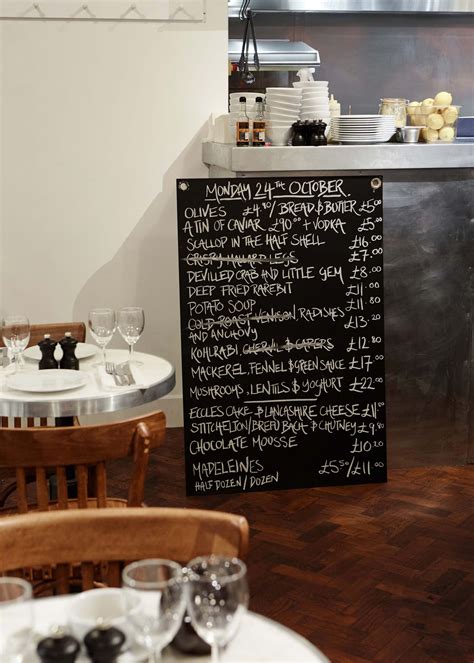 MONDAY 24TH OCTOBER.
OLIVES £4.80/ BREAD & BUTTER £5.00
A TIN OF CAVIAR £90.00 + VODKA £5.00
SCALLOP IN THE HALF SHELL £16.00
CRISPY MALLARD LEGS £7.00
DEVILLED CRAB AND LITTLE GEM £8.00
DEEP FRIED RAREBIT
POTATO SOUP £11.80
COLD ROAST VENISON, RADISHES £13.20
AND ANCHOVY
KOHLRABI, CHERVIL & CAPERS £12.80
MACKEREL, FENNEL & GREEN SAUCE £17.00
MUSHROOMS, LENTILS & YOGHURT £22.00
ECCLES CAKE & LANCASHIRE CHEESE £11.00
& CHUTNEY £9.80
CHOCOLATE MOUSSE £10.20
MADELEINES £5.50/£11.00
HALF DOZEN/DOZEN